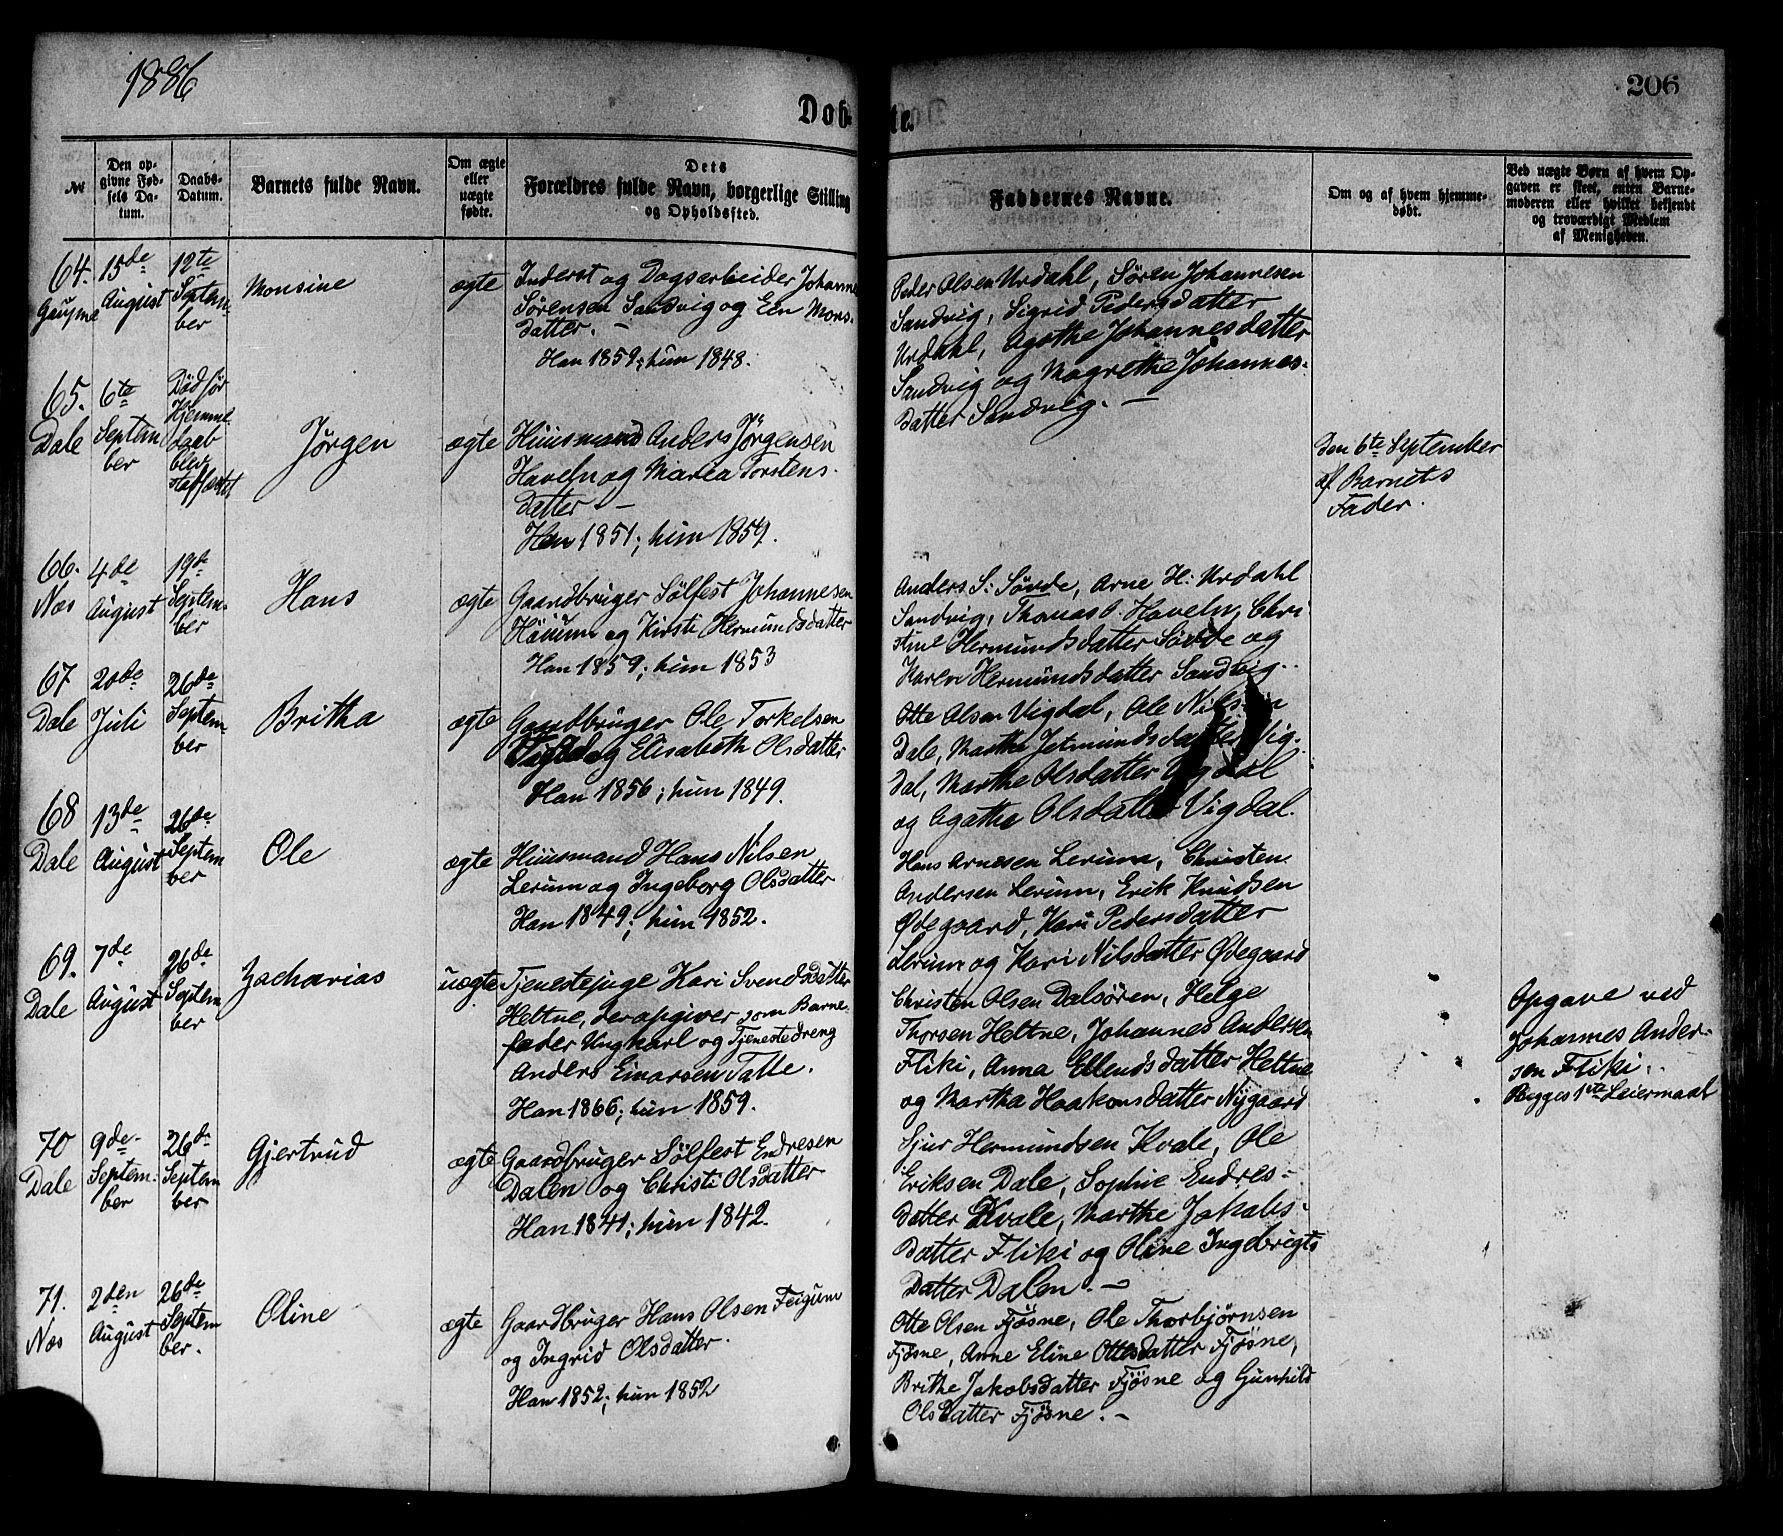 1886
206
Døb- te.
№
Den op-
givne Fød-
sels Da-
tum.
Daabs-
Datum.
Barnets fulde Navn.
Om ægte
eller
uægte
fødte.
Dets
Forældres fulde Navn, borgerlige Stilling
og Opholdssted.
Faddernes Navne.
Om og af hvem hjemme-
døbt.
Ved uægte Børn af hvem Op-
gaven er skeet, enten Barne-
moderen eller hvilket bekjendt
og troværdigt Medlem
af Menigheden.
64.
Gaupne
15de
August
12te
Septem-
ber
Monsine
ægte
Inderst og Dagsarbeider Johanne
Sørensen Sandvig og Eli Mons-
datter. —
Han 1859; hun 1848.
Peder Olsen Urdahl, Søren Johannesen
Sandvig, Sigrid Pedersdatter
Urdahl, Agathe Johannesdatter
Sandvig og Magrethe Johannes-
datter Sandvig. —
65.
Dale
6te
Septem-
ber
Død før
Hjemme
daab
blev
stadfæstet
Jørgen
ægte
Huusmand Anders Jörgensen
Haveln og Maria Torstens-
datter —
Han 1851; hun 1859.
Den 6te September
af Barnets
Fader.
66.
Næs
4de
August
19de
Septem-
ber
Hans
ægte
Gaardbruger Sölfest Johannesen
Höium og Kirsti Hermundsdatter
Han 1859; hun 1853
Anders S. Søvde, Arne H. Urdahl
Sandvig, Thomas O. Haveln, Chri
stine Hermundsdatter Søvde og
Karen Hermundsdatter Sandvig.
67
Dale
20de
Juli
26de
Septem-
ber
Britha
ægte
Gaardbruger Ole Torkelsen
Vigdal og Elisabeth Olsdatter
Han 1856; hun 1849.
Otte Olsen Vigdal, Ole Nilsen
Dale, Martha Jetmundsdatter Vig-
dal, Marthe Olsdatter Vigdal
og Agatha Olsdatter Vigdal.
68
Dale
13de
August
26de
Septem
ber
Ole
ægte
Huusmand Hans Nilsen
Lerum og Ingeborg Olsdatter
Han 1849; hun 1852.
Hans Arnesen Lerum, Christen
Andersen Lerum, Erik Knudsen
Ødegaard, Kari Pedersdatter
Lerum og Kari Nilsdatter Ødegaard
69.
Dale
7de
August
26de
Septem
ber
Zacharias
uægte
Tjenestepige Kari Svendsdatter
Heltne, der opgiver som Barne-
fader Ungkarl og Tjenestedreng
Anders Einarsen Talle.
Han 1866; hun 1859.
Christen Olsen Dalsören, Helge
Thorsen Heltne, Johannes Andersen
Fliki, Anna Ellendsdatter Heltne
og Martha Haakonsdatter Nygaard
Opgave ved
Johannes Ander-
sen Fliki.
Begges 1ste Leiermaal
70
Dale
9de
Septem-
ber
26de
Septem
ber
Gjertrud
ægte
Gaardbruger Sölfest Endresen
Dalen og Christi Olsdatter
Han 1841; hun 1842.
Sjur Hermundsen Kvale, Ole
Eriksen Dale, Sophie Endres-
datter Kvale, Marthe Jakobs-
datter Fliki og Oline Ingebrigts
datter Dalen. —
71.
Næs
2den
August
26de
Septem
ber.
Oline
ægte
Gaardbruger Hans Olsen Feigum
og Ingrid Olsdatter.
Han 1852; hun 1852
Otte Olsen Fjøsne, Ole Thorbjørnsen
Fjøsne, Anne Eline Ottesdatter Fjøsne,
Brithe Jakobsdatter Fjøsne og Gunhild
Olsdatter Fjøsne. —